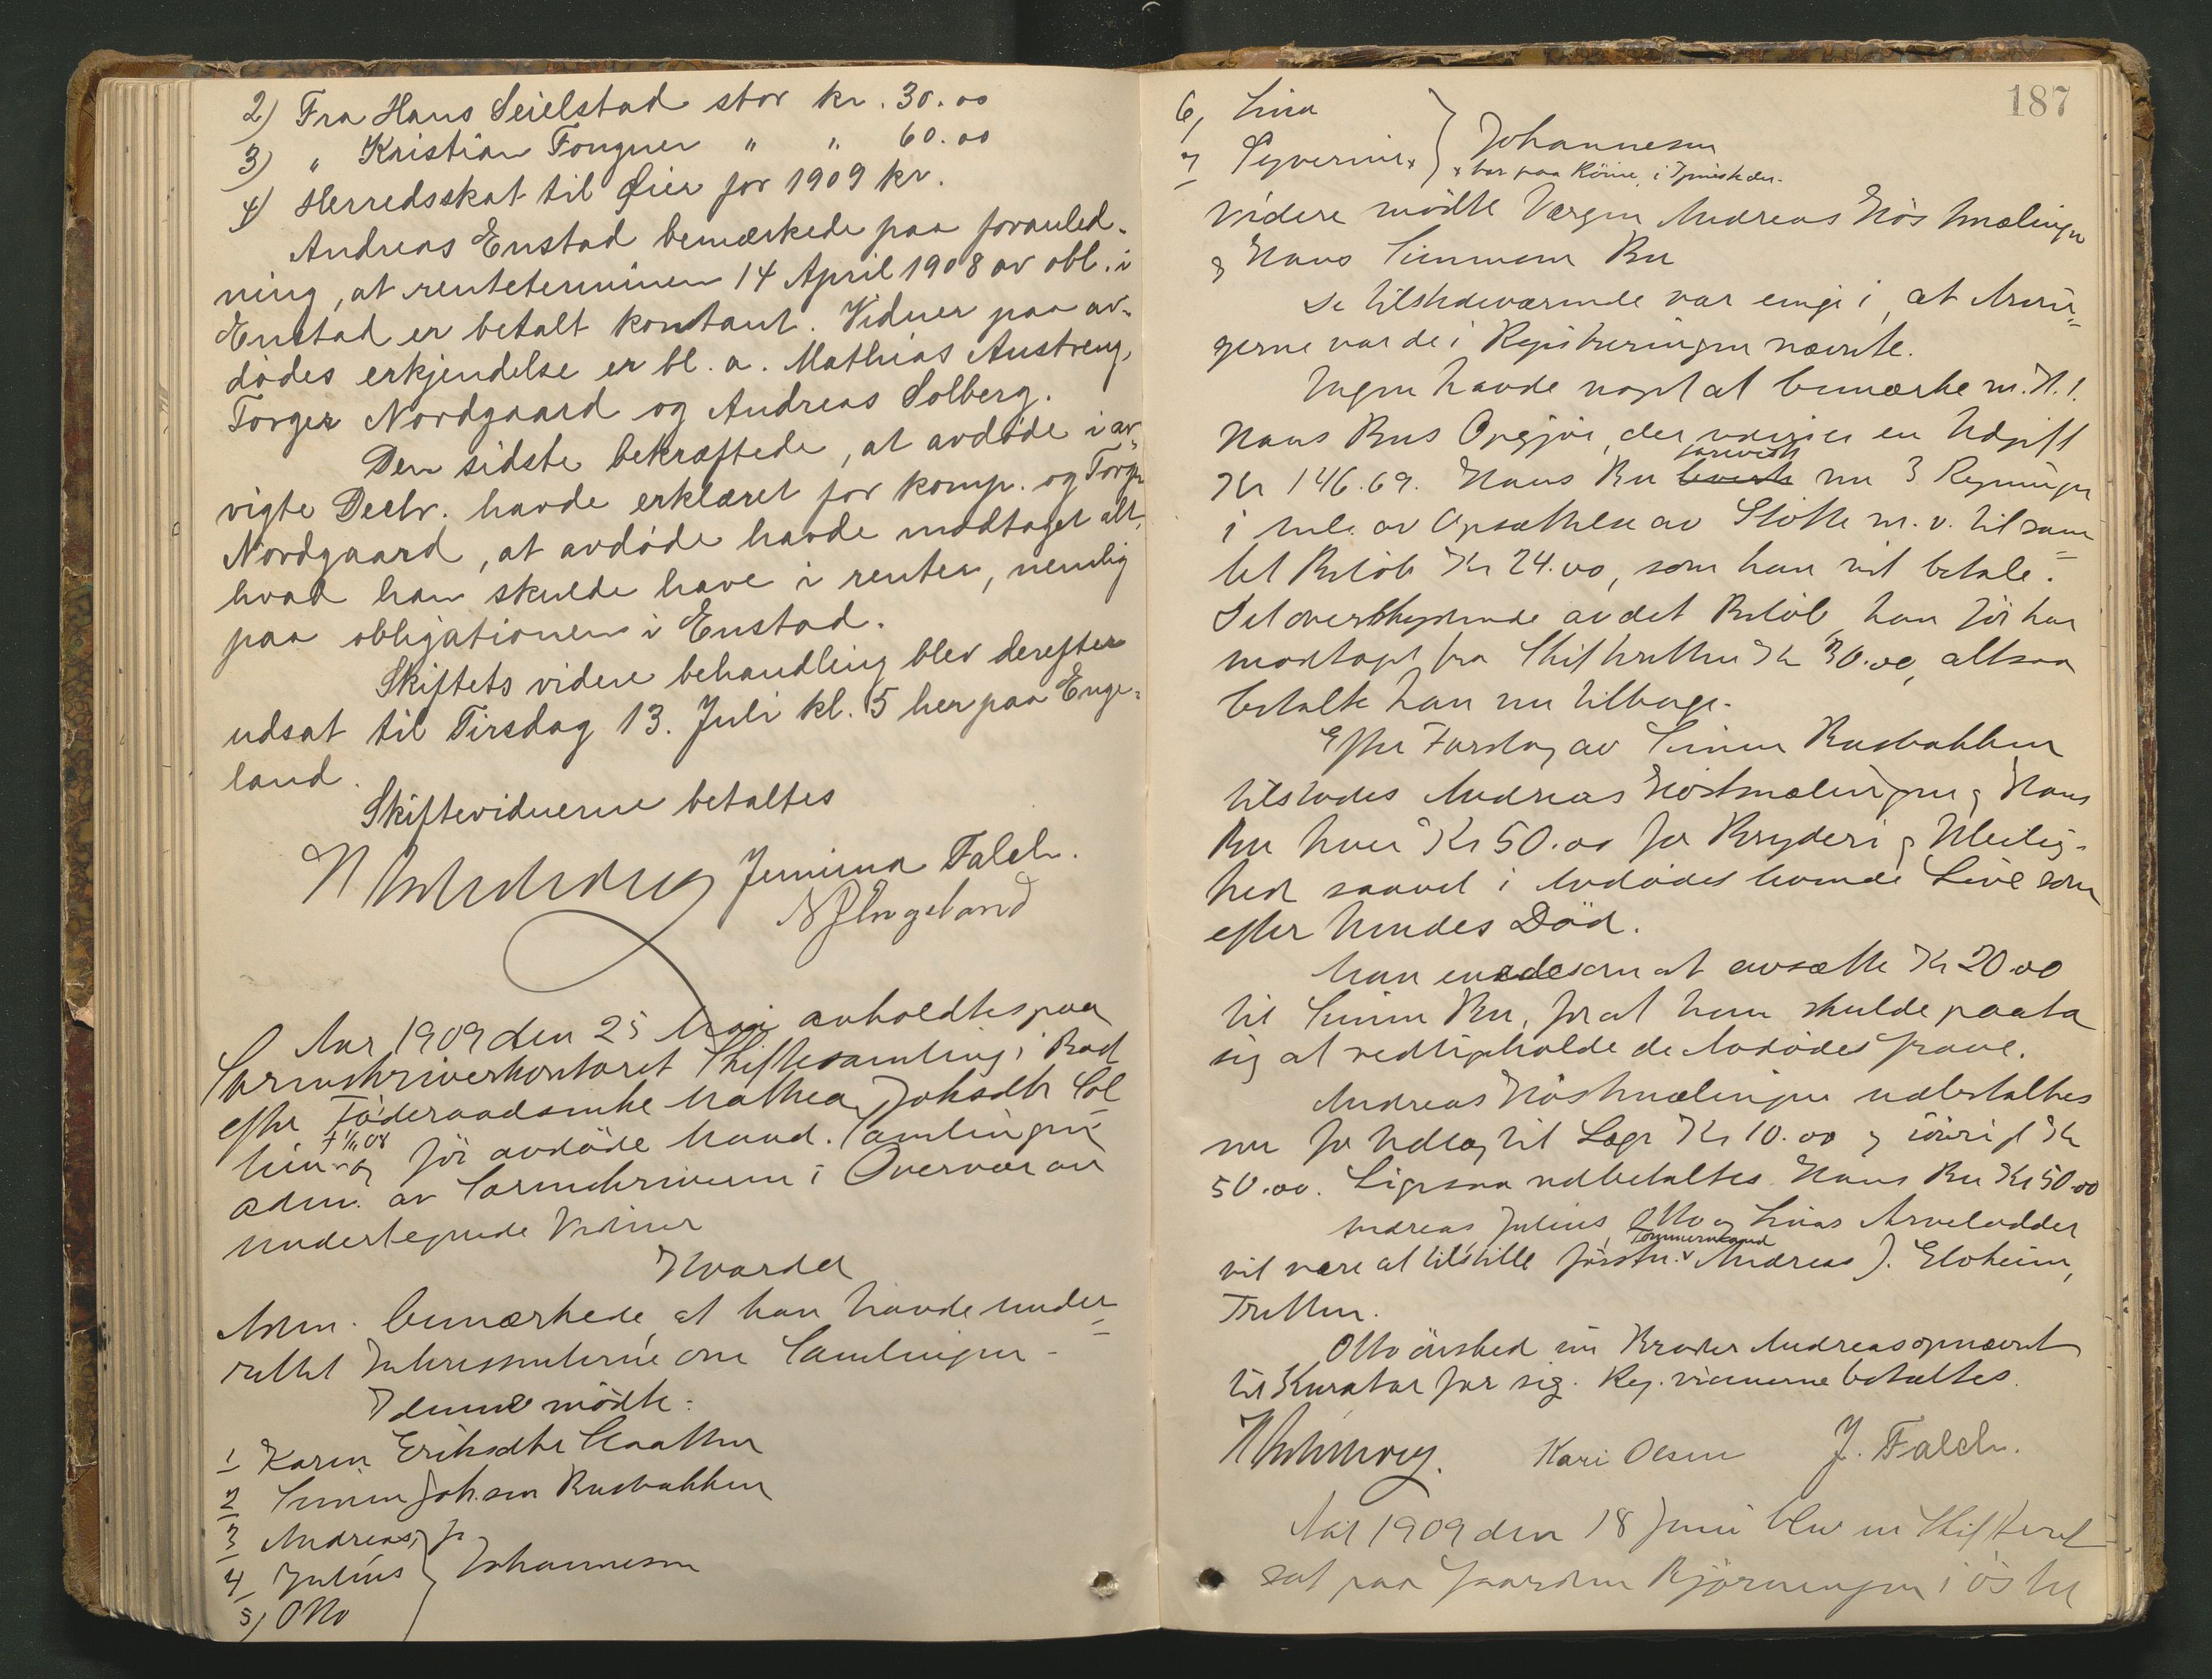 2) Fra Hans Seielstad stor kr. 30.00
3) " Kristian Fougner " " 60.00
4) Herredsskat til Øier for 1909 kr.
Andreas Enstad bemærkede paa foranled-
ning, at renteterminen 14 April 1908 av obl. i
Enstad er betalt kontant. Vidner paa av-
dødes erkjendelse er bl. a. Mathias Austreng,
Torger Nordgaard og Andreas Solberg.
Den sidste bekræftede, at avdøde i av-
vigte Decbr. havde erklæret for komp. og Torger
Nordgaard, at avdøde havde modtaget alt,
hvad han skulde have i renter, nemlig
paa obligationen i Enstad.
Skiftets videre behandling blev derefter
udsat til Tirsdag 13. Juli kl. 5 her paa Enge-
land.
Skiftevidnerne betaltes
Jemima Falch.
N J Engeland
Aar 1909 den 25 Mai avholdtes paa
Sorenskriverkontoret Skiftesamling i Bod
efter Føderaadsenke Mathea Johsdtr Sol
† 1/11 08
og før avdøde Mand. Samlingen
adm. av Sorenskriveren i Overvær av
undertegnede Vidner
Hvorda
Adm. bemærkede, at han havde under=
rettet Interessenterne om Samlingen -
I denne mødte:
1 Karen Eriksdtr Slaathen
2 Simen Johsen Rusbakken
3 Andreas
4 Julius } Johannesen
5) Otto
187
6, Lina
7 Syverine x } Johannesen
x bor paa Rörvie, i Tjeneste der.
Videre mødte Værgen Andreas Høstmælingen
& Hans Simensen Bu
De tilstedeværende var enige i, at Arvin=
gerne var de i Registreringen nævnte.
Ingen havde noget at bemærke m. H. t.
Hans Bus Opgjør, der udviser en Udgift
foreviste
Kr 146.69. Hans Bu nu 3 Regninger
i Anl. av Opsættelse av Støtte m. v. til sam=
let Beløb Kr 24.00, som han vil betale.
Det overskydende av det Beløb, han før har
modtaget fra Skifteretten Kr 30.00, altsaa
betalte han nu tilbage.
Efter Forslag av Simen Rusbakken
tilstodes Andreas Høstmælingen & Hans
Bu hver Kr 50.00 for Bryderi & Uleilig-
hed saavel i Avdødes levende Live som
efter hendes Död.
Man enedes om at avsætte Kr 20.00
til Simen Bu, for at han skulde paata
sig at vedligeholde de Avdødes Grave.
Andreas Høstmælingen udbetaltes
nu for Udlæg til Læge Kr 10.00 & iøvrigt Kr
50.00. Ligesaa udbetaltes Hans Bu Kr 50.00
Andreas, Julius, Otto og Linas Arvelodder
Tømmermand
vil være at tilstille førstn. v Andreas J. Eloheim,
Tretten.
Otto ønsked sin Broder Andreas opnævnt
til Kurator for sig. Reg. vidnerne betaltes.
Kari Olsen J. Falch.
Aar 1909 den 18 Juni blev en Skifteret
sat paa Gaarden Bjørnungen i Østre